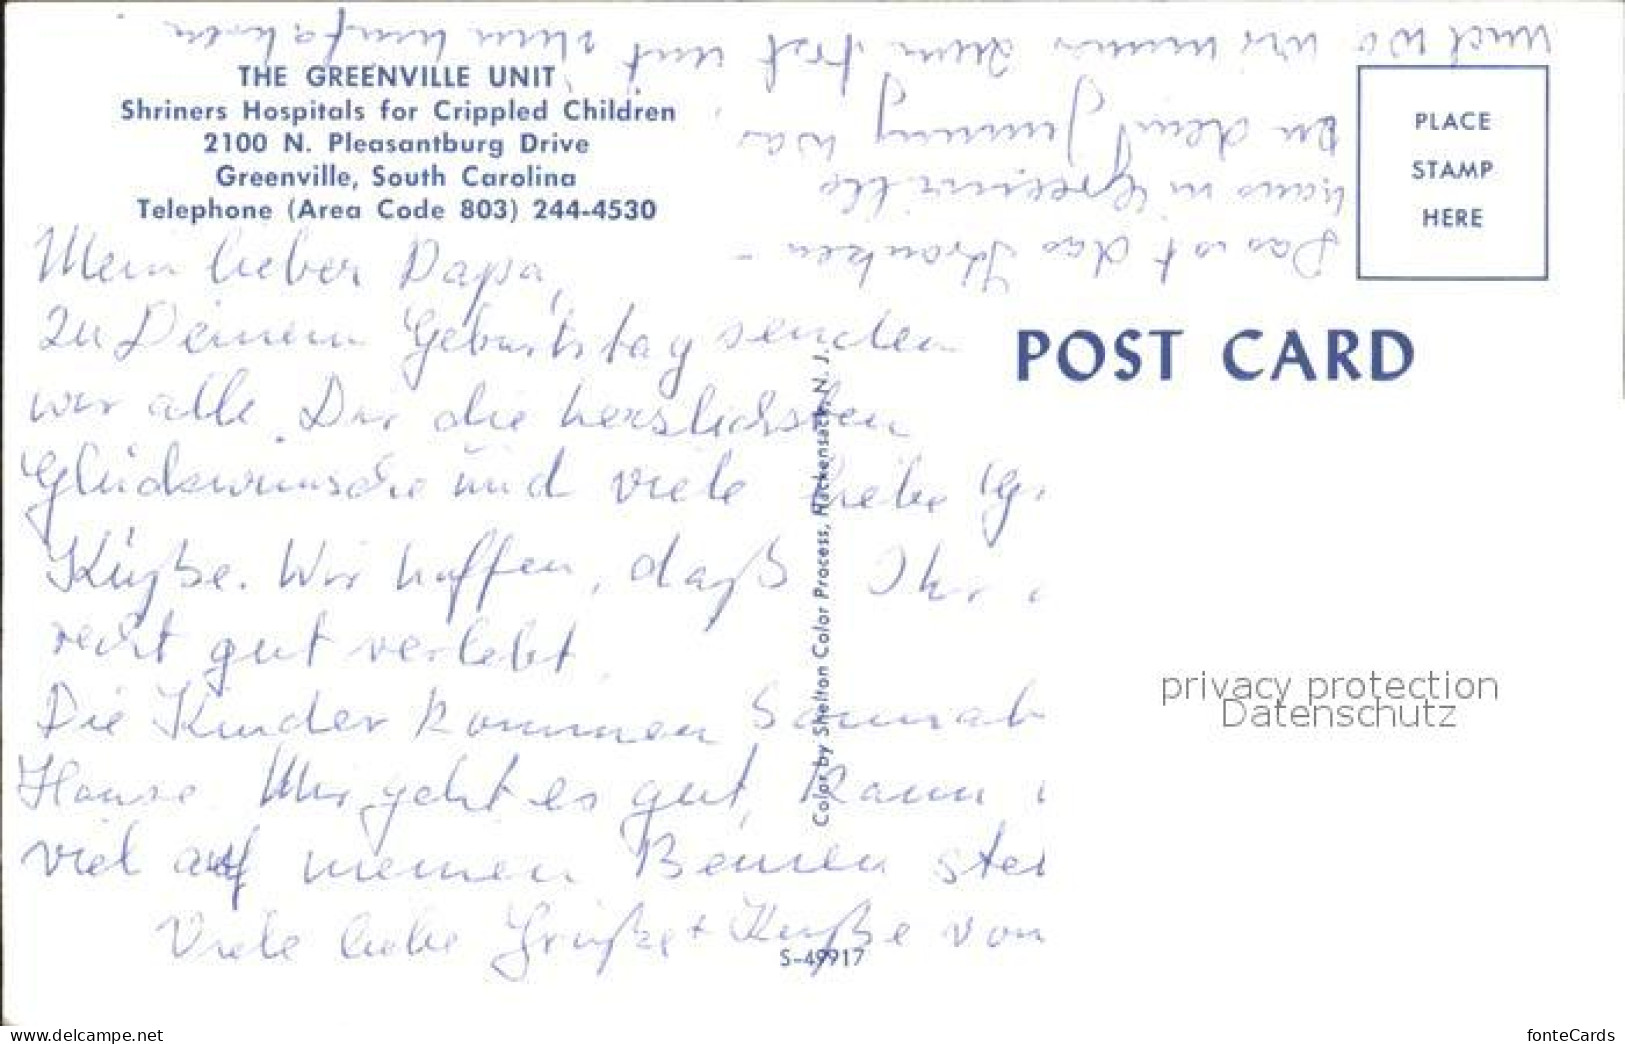 THE GREENVILLE UNIT
Shriners Hospitals for Crippled Children
2100 N. Pleasantburg Drive
Greenville, South Carolina
Telephone (Area Code 803) 244-4530
Mein lieber Papa,
zu Deinem Geburtstag senden
wir alle Dir die herzlichsten
Glückwünsche und viele liebe Gr
Küße. Wir hoffen, daß Ihr
recht gut verlebt
Die Kinder kommen Sonnab
Hause. Mir geht es gut, kann
viel auf meinen Beinen steh
Viele liebe Grüße + Küße von
Das ist das Kranken-
haus in Greenville
in dem Jimmy war
und wo wir immer zum fest mit
PLACE
STAMP
HERE
POST CARD
Color by Shelton Color Process, Hackensack, N. J.
S-49917
privacy protection
Datenschutz
www.delcampe.net
fonteCards